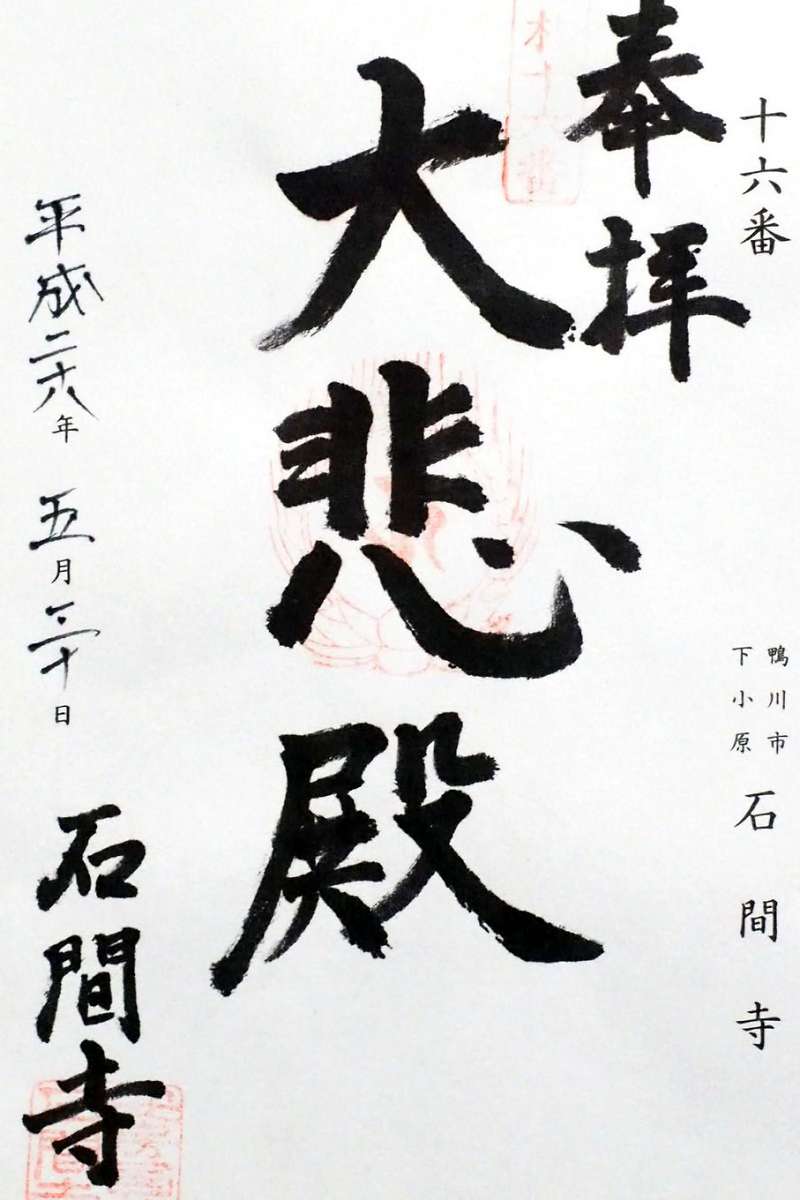 十六番
鴨川市
下小原
石間寺
奉拝
大悲殿
平成二十六年 五月三十日
石間寺